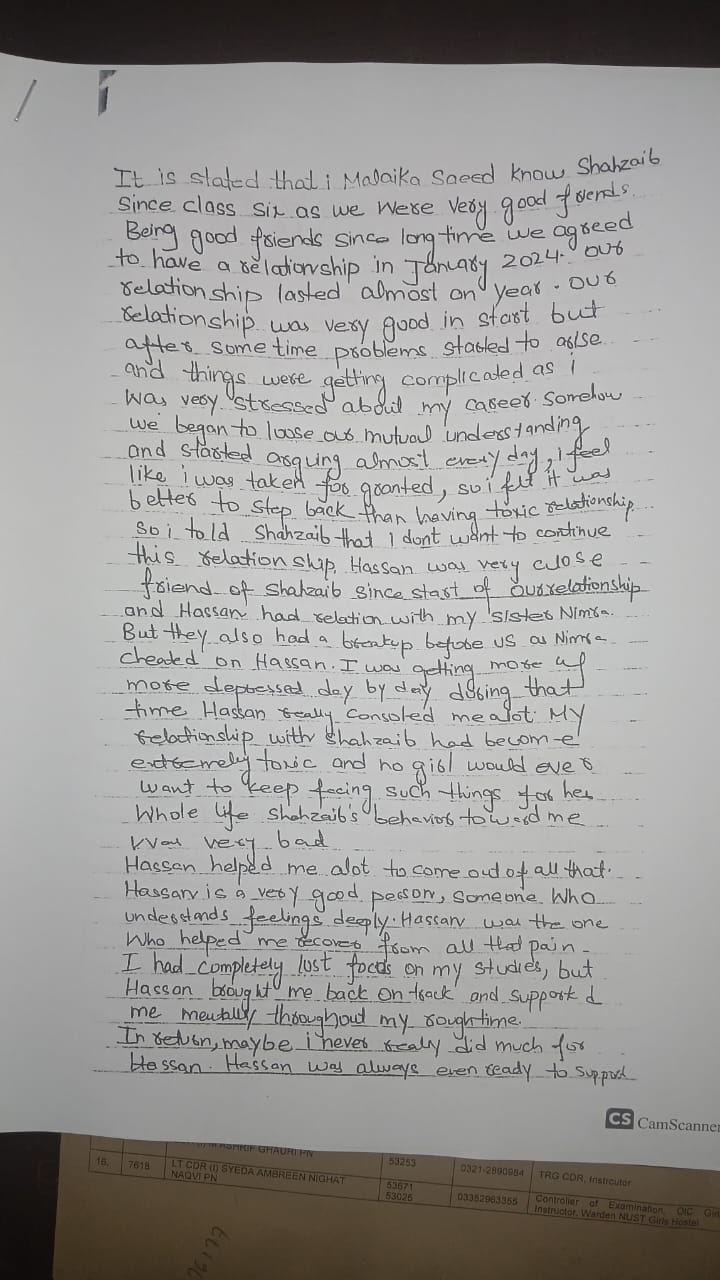 It is stated that i Malaika Saeed know Shahzaib
since class six as we were very good friends.
Being good friends since long time we agreed
to have a relationship in January 2024. our
relationship lasted almost an year. our
relationship was very good in start but
after some time problems started to arise
and things were getting complicated as i
was very stressed about my career. somehow
we began to loose our mutual understanding
and started arguing almost every day, i feel
like i was taken for granted, so i felt it was
better to step back than having toxic relationship
so i told Shahzaib that I dont want to continue
this relationship. Hassan was very close
friend of Shahzaib since start of our relationship
and Hassan had relation with my sister Nimra.
But they also had a breakup before us as Nimra
cheated on Hassan. I was getting more
more depressed day by day during that
time Hassan really consoled me alot. MY
relationship with Shahzaib had become
extremely toxic and no girl would ever
want to keep facing such things for her
whole life Shahzaib's behavior toward me
was very bad
Hassan helped me alot to come out of all that.
Hassan is a very good person, someone who
understands feelings deeply. Hassan was the one
who helped me recover from all that pain.
I had completely lost focus on my studies, but
Hassan brought me back on track and support d
me mentally throughout my rough time.
In return, maybe i never really did much for
Hassan. Hassan was always even ready to support
CS CamScanner
GHAURI PN
53253
0321-2890984
TRG CDR, Instructor
16.
7618
LT CDR (I) SYEDA AMBREEN NIGHAT
NAQVI PN
53671
53025
03352963355
Controller of Examination, OIC
Instructor, Warden NUST Girls Hostel